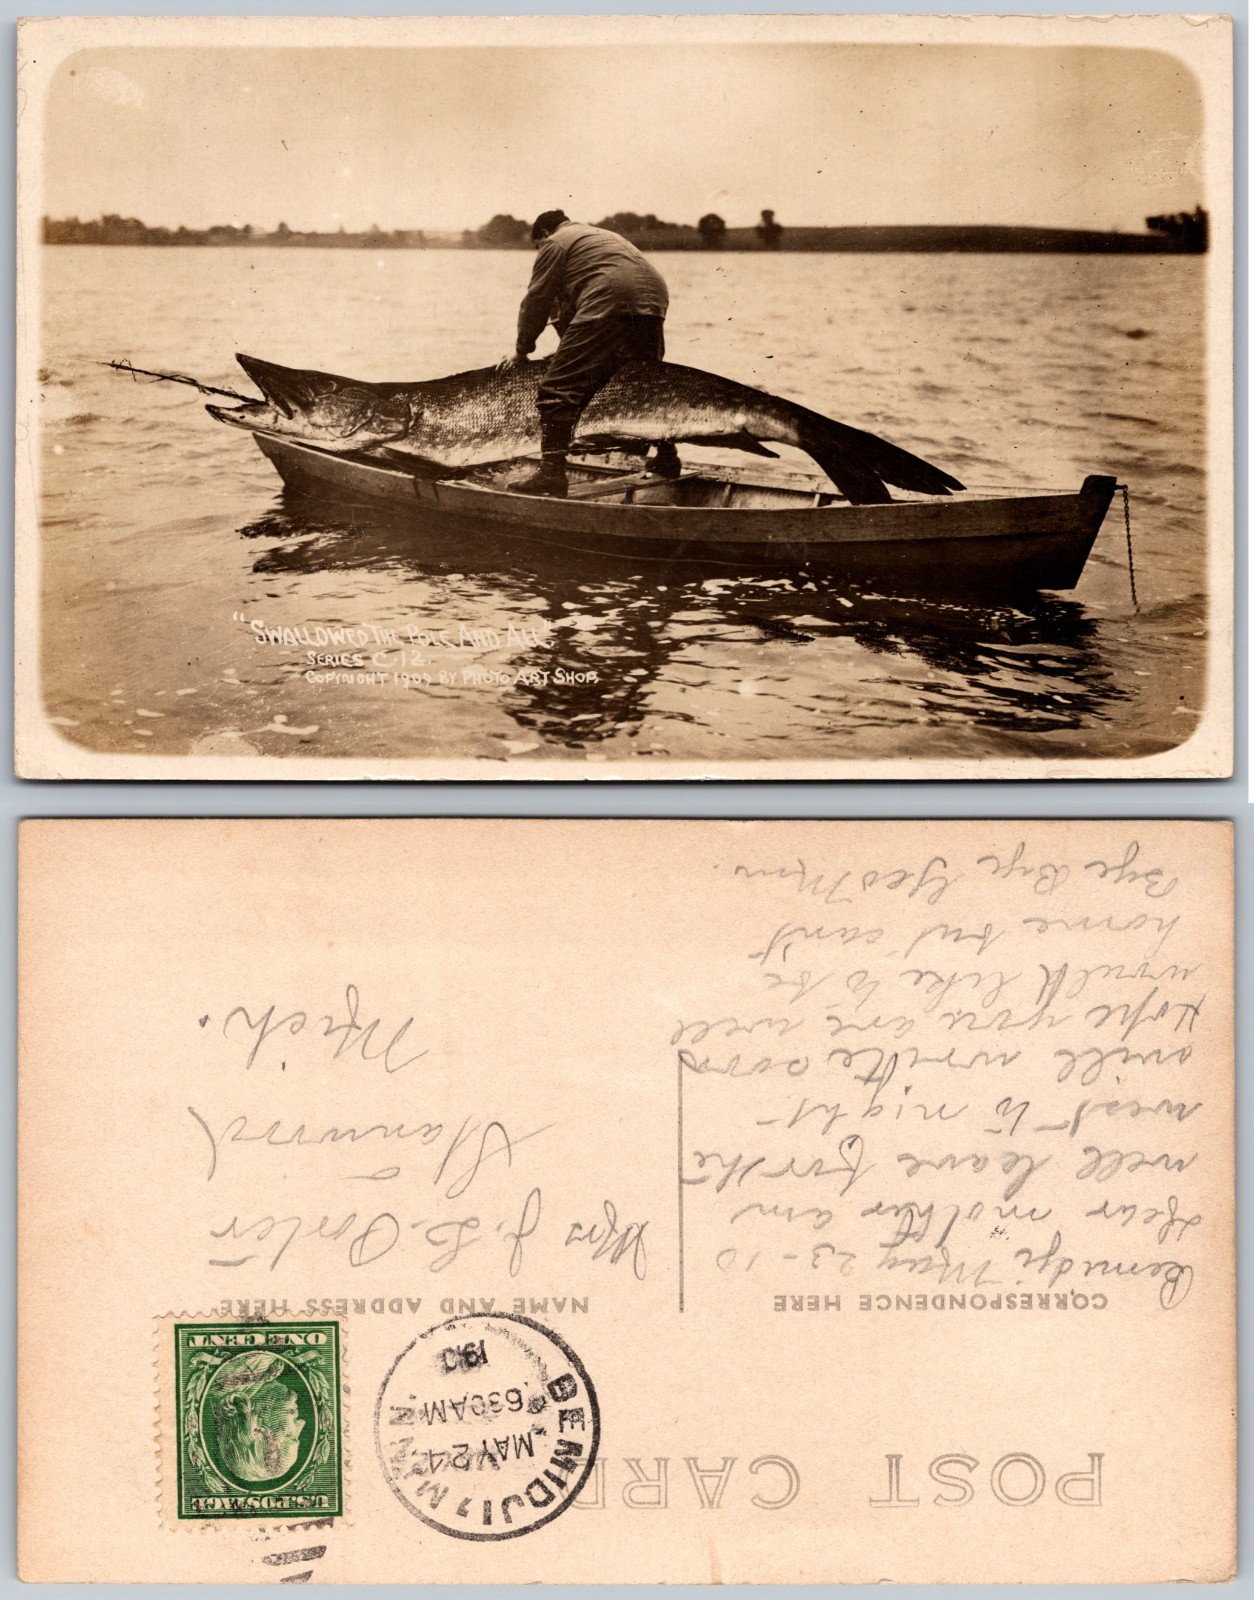 "SWALLOWED THE POLE AND ALL"
SERIES C.12.
COPYRIGHT 1909 BY PHOTO ART SHOP.
POST CARD
CORRESPONDENCE HERE
NAME AND ADDRESS HERE
BEMIDJI, MINN
MAY 24
630AM
191
U.S. POSTAGE
ONE CENT
Bemidji May 23-10
Dear mother am
well leave for the
west to night
will write soon
Hope you are well
would like to be
home but can't
Bye Bye Geo
Mrs J. L. Porter
Stanwood
Mich.